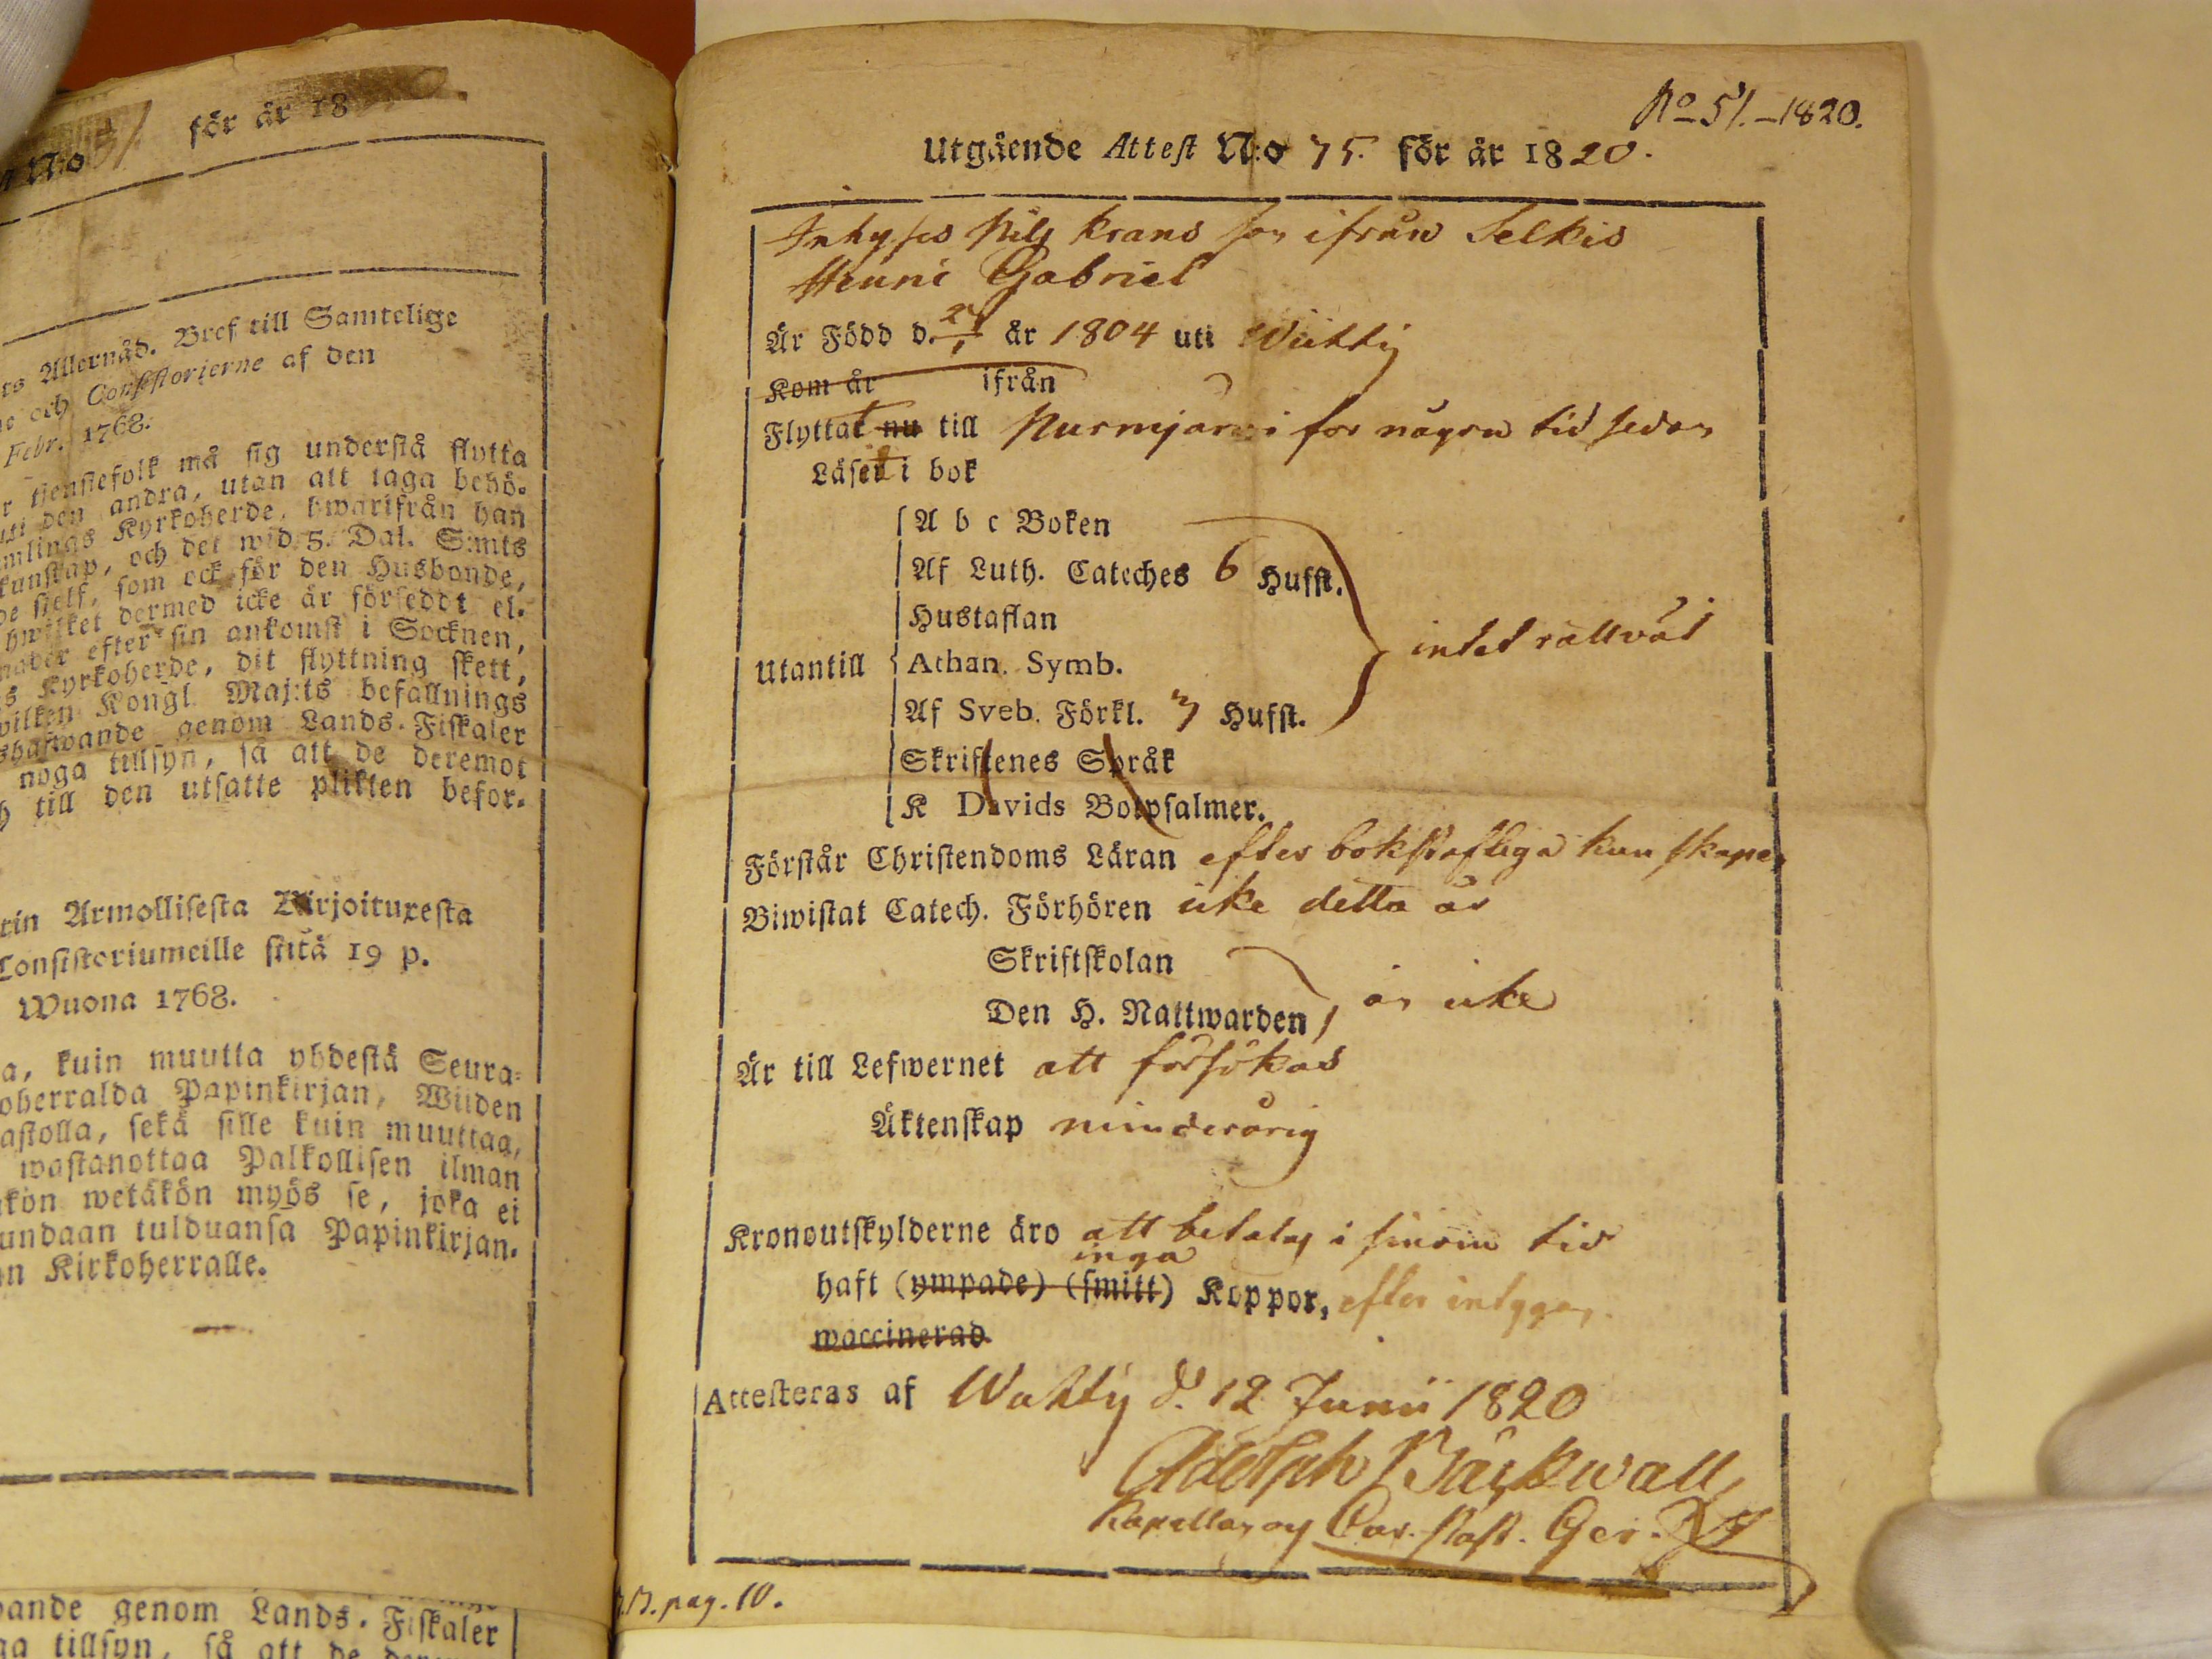 för år 18
N:o
Allernåd. Bref till Samtelige
och Consistorierne af den
Febr. 1768.
tjenstefolk må sig understå flytta
uti den andra, utan att taga behö-
Kyrkoherde, hwarifrån han
och det wid 5. Dal. S:mts
sjelf, som ock för den Husbonde,
dermed icke är försedt el-
efter sin ankomst i Socknen,
Kyrkoherde, dit flyttning skett,
Kongl. Maj:ts befallnings
genom Lands-Fiskaler
noga tillsyn, så att de deremot
till den utsatte plikten befor-
Armollisesta Kirjoituxesta
Consistoriumeille siitä 19 p.
Wuona 1768.
kuin muutta yhdestä Seura-
Papinkirjan, Wiiden
sekä sille kuin muuttaa,
wastanottaa Palkollisen ilman
wetäkön myös se, joka ei
tulduansa Papinkirjan.
Kirkoherralle.
genom Lands-Fiskaler
tillsyn, så att
No 51.-1820.
Utgående Attest N:o 75. för år 1820.
Inhyses Nils Krans son ifrån Selkis
Henric Gabriel
Är Född d. år 1804 uti Wichtis
Kom år ifrån
Flyttat nu till Nurmijärvi for någon tid sedan
Läser i bok
A b c Boken
Af Luth. Cateches 6 Hufst.
Hustaflan
Utantill Athan. Symb. intet rättväl
Af Sveb. Förkl. 3 Hufst.
Skriftenes Språk
K Davids Botpsalmer.
Förstår Christendoms Läran efter bokstafliga kunskapen
Biwistat Catech. Förhören icke detta år
Skriftskolan
Den H. Nattwarden än icke
Är till Lefwernet att försökas
Äktenskap minderårig
Kronoutskylderne äro att betalas i sinom tid
inga
haft (ympade) (smitt) Koppor, efter intygan.
waccinerad
Attesteras af Wichtis d. 12 Junii 1820
Adolph Bäckwall
Kapellan Past. Ger.
pag. 10.